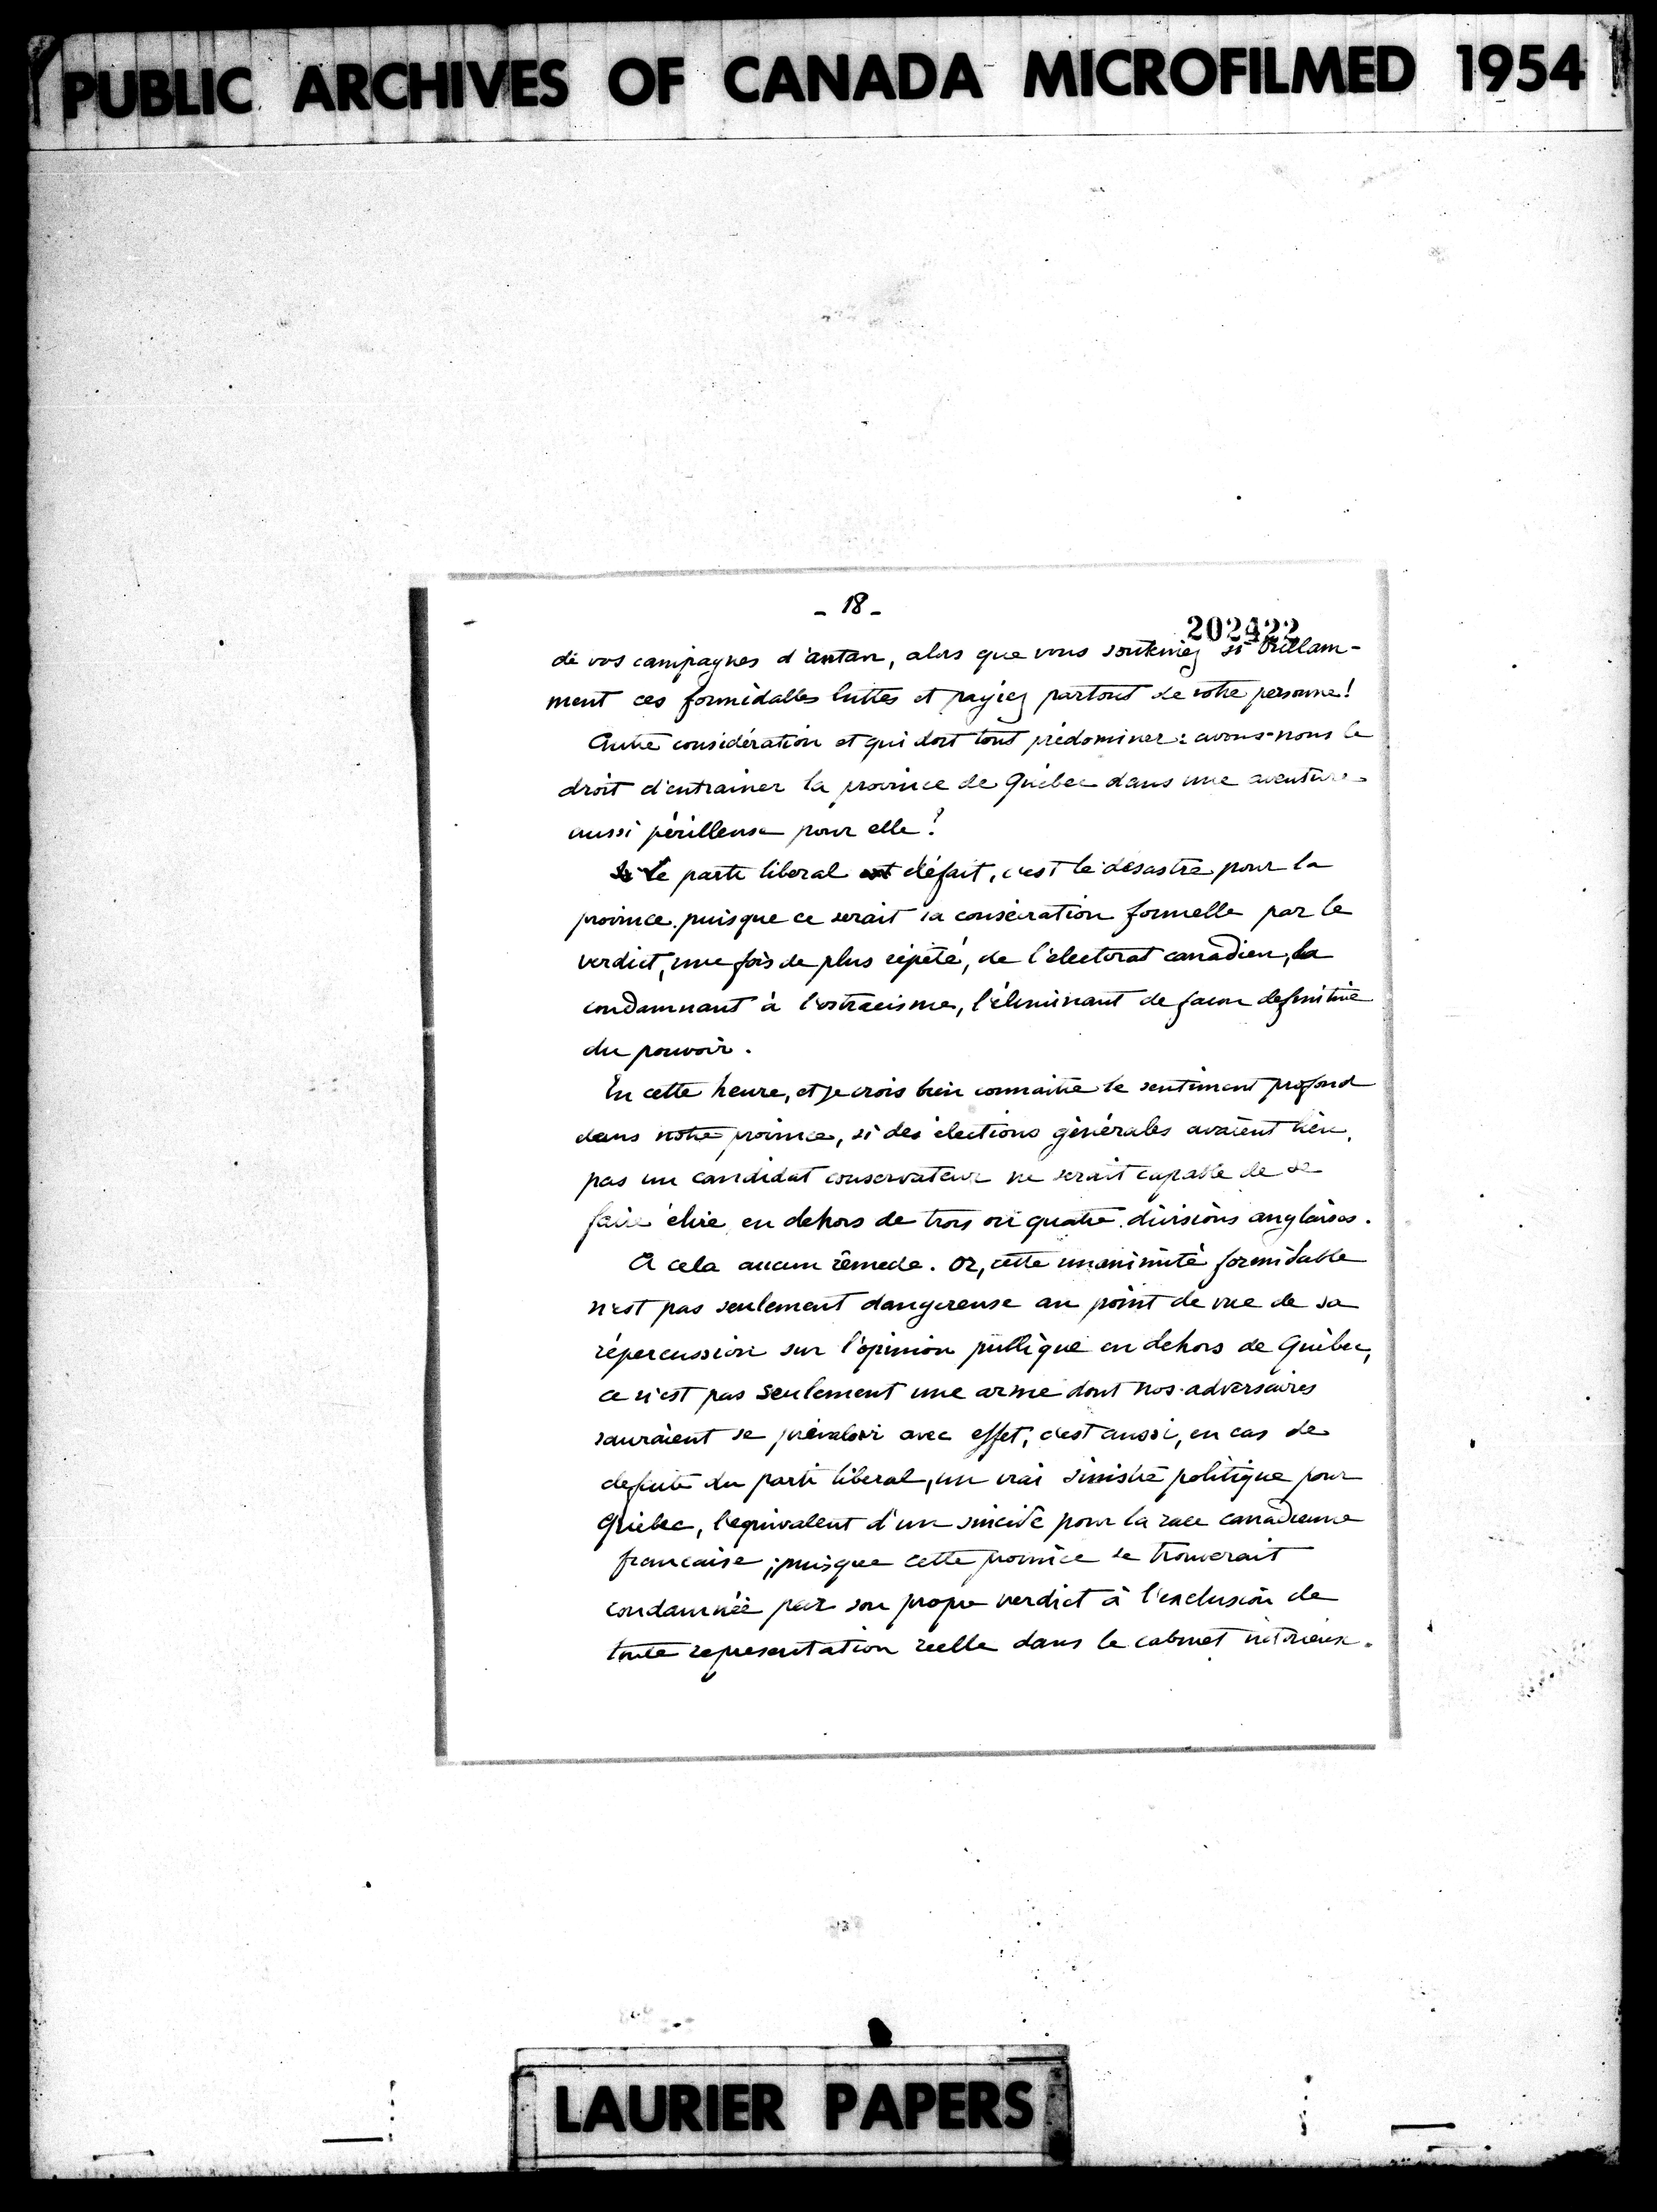 PUBLIC ARCHIVES OF CANADA MICROFILMED 1954
- 18 -
202422
de vos campagnes d'antan, alors que vous souteniez si brillam-
ment ces formidables luttes et payiez partout de votre personne!
Autre considération et qui doit tout prédominer: avons-nous le
droit d'entrainer la province de Québec dans une aventure
aussi périlleuse pour elle?
Si le parti liberal est défait, c'est le désastre pour la
province puisque ce serait la consécration formelle par le
verdict, une fois de plus répété, de l'électorat canadien, la
condamnant à l'ostracisme, l'éliminant de facon definitive
du pouvoir.
En cette heure, et je crois bien connaitre le sentiment profond
dans notre province, si des élections générales avaient lieu,
pas un candidat conservateur ne serait capable de se
faire élire en dehors de trois ou quatre divisions anglaises.
A cela aucun rêmede. Or, cette unanimité formidable
n'est pas seulement dangereuse au point de vue de sa
répercussion sur l'opinion publique en dehors de Québec,
ce n'est pas seulement une arme dont nos adversaires
sauraient se prévaloir avec effet, c'est aussi, en cas de
defaite du parti liberal, un vrai sinistre politique pour
Québec, l'equivalent d'un suicide pour la race canadienne
francaise; puisque cette province se trouverait
condamnée par son propre verdict à l'exclusion de
toute representation réelle dans le cabinet victorieux.
LAURIER PAPERS